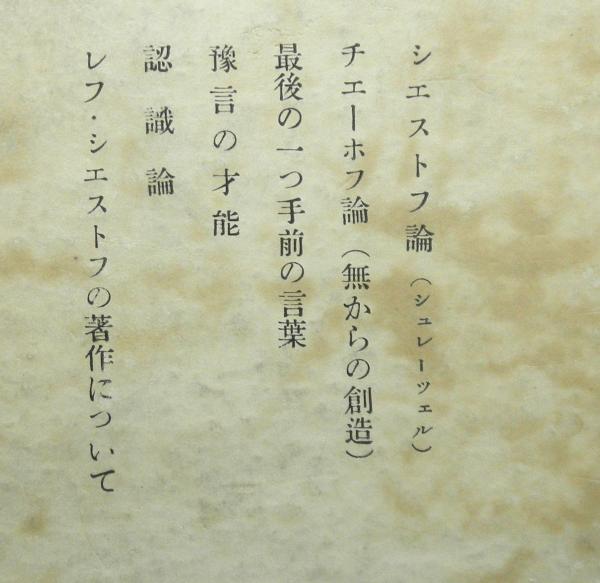 シエストフ論（シュレーツェル）
チエーホフ論（無からの創造）
最後の一つ手前の言葉
豫言の才能
認識論
レフ・シエストフの著作について